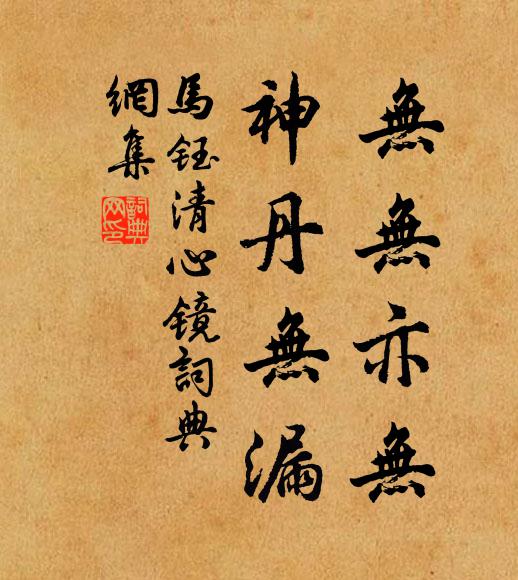 無無亦無
神丹無漏
馬鈺清心鏡詞典
網集
詞典
网印